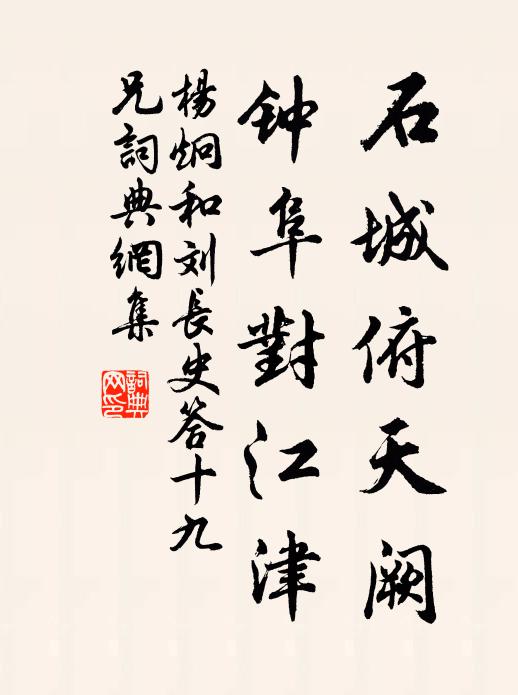 石城俯天阙
钟阜對江津
楊炯和刘長史答十九
兄詞典網集
詞典
网印